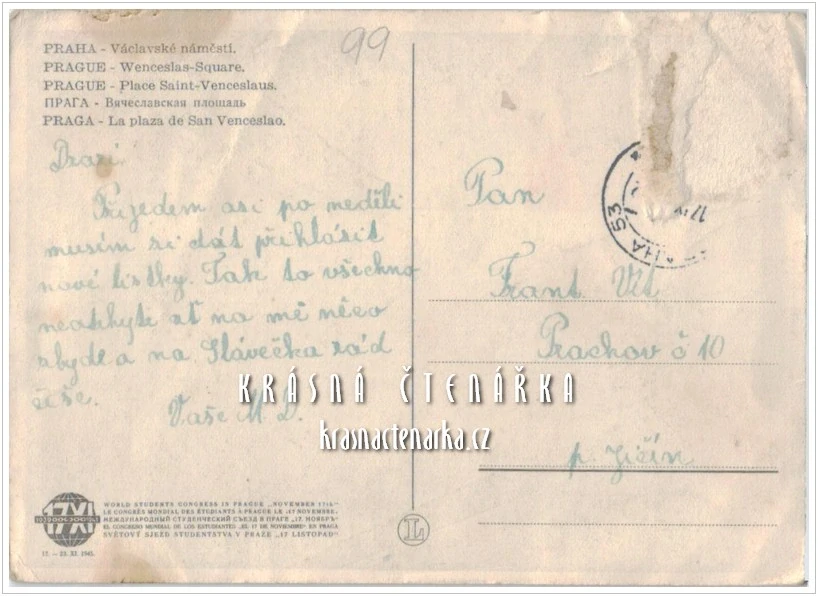 99
PRAHA - Václavské náměstí.
PRAGUE - Wenceslas-Square.
PRAGUE - Place Saint-Venceslaus.
ПРАГА - Вячеславская площадь
PRAGA - La plaza de San Venceslao.
Drazí
Přijedem asi po neděli
musím si dát přihlásit
nové lístky. Tak to všechno
ať na mě něco
zbyde a na Slávečka
Vaše M. D.
Pan
Frant.
Prachov č 10
p. Jičín
PRAHA 53
17.IV
KRÁSNÁ ČTENÁŘKA
krasnactenarka.cz
17XI
WORLD STUDENTS CONGRESS IN PRAGUE „NOVEMBER 17th"
LE CONGRÈS MONDIAL DES ÉTUDIANTS À PRAGUE LE „17 NOVEMBRE„
МЕЖДУНАРОДНЫЙ СТУДЕНЧЕСКИЙ СЪЕЗД В ПРАГЕ „17. НОЯБРЬ"
EL CONGRESO MUNDIAL DE LOS ESTUDIANTES „EL 17 DE NOVIEMBRE" EN PRAGA
SVĚTOVÝ SJEZD STUDENTSTVA V PRAZE „17 LISTOPAD"
17. — 23. XI. 1945.
L